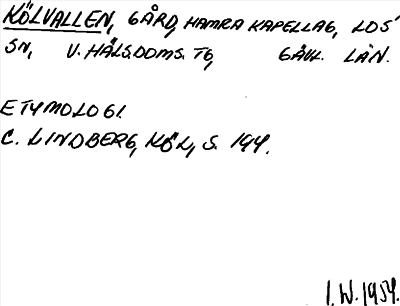 KÖLVALLEN, GÅRD, HAMRA KAPELLAG, LOS'
SN, V. HÄLS. DOMS. TG, GÄVL. LÄN.
ETYMOLOGI.
C. LINDBERG, KÖL, S. 194.
I.W. 1954.